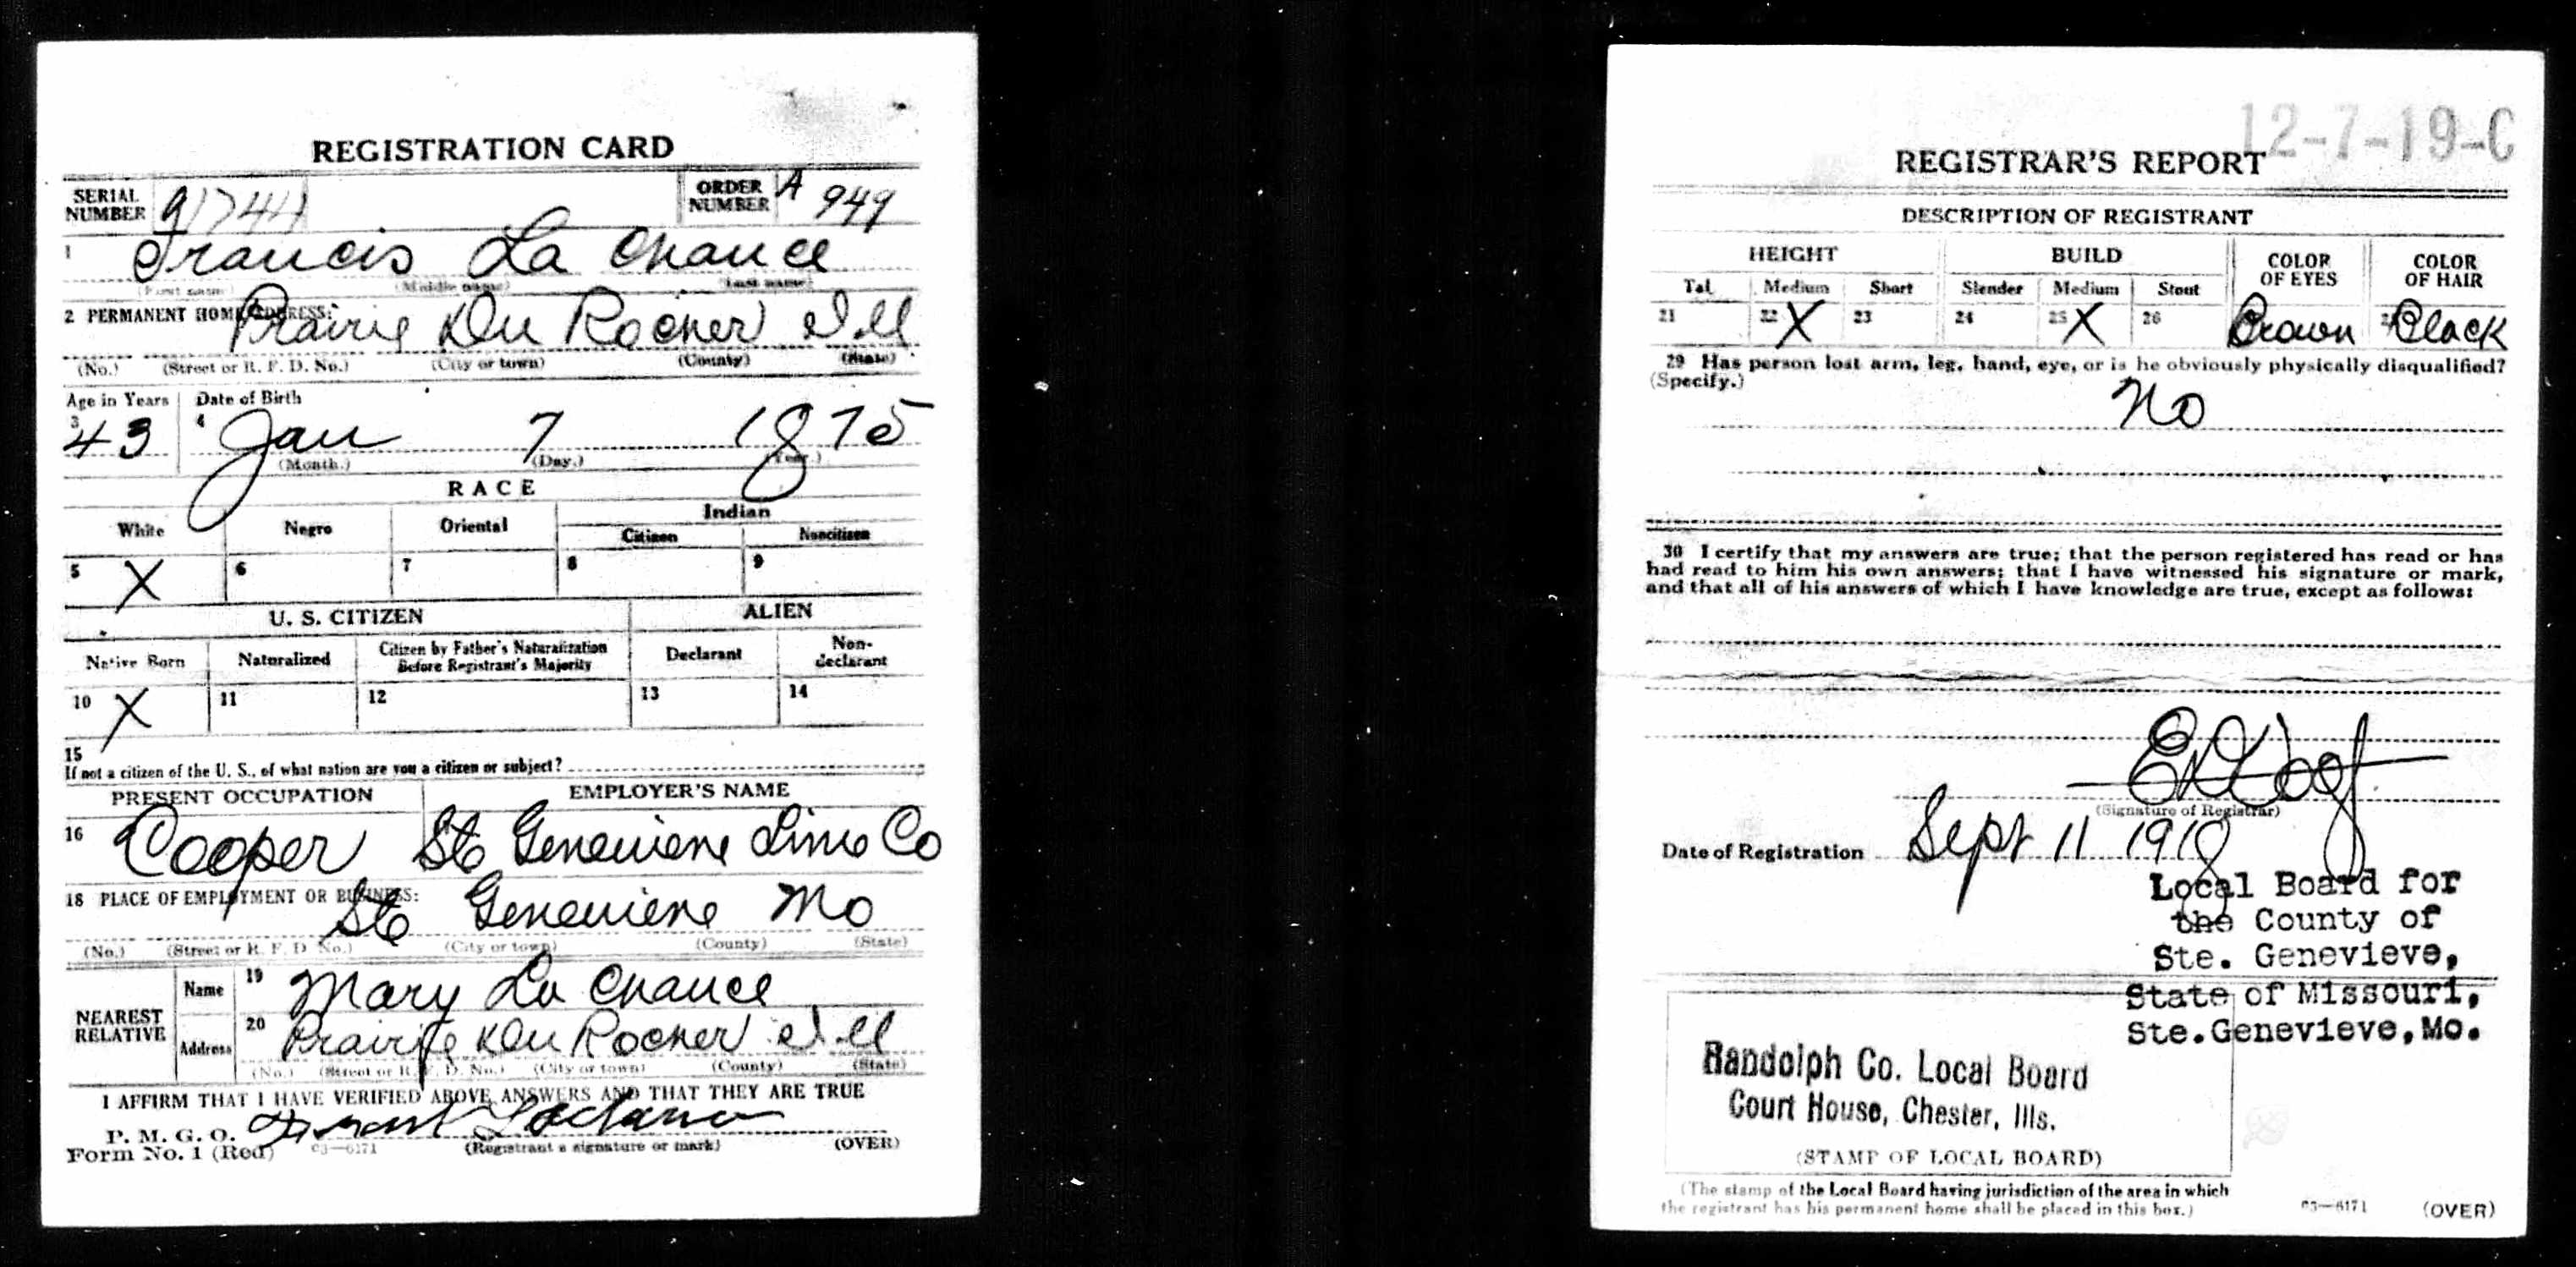 REGISTRATION CARD
SERIAL NUMBER
ORDER NUMBER A 949
1 Francis La Chance
(First name) (Middle name) (Last name)
2 PERMANENT HOME ADDRESS:
Prairie Du Rocher Ill
(No.) (Street or R. F. D. No.) (City or town) (County) (State)
Age in Years Date of Birth
3 43 4 Jan 7 1875
(Month.) (Day.) (Year.)
RACE
White Negro Oriental Indian
Citizen Noncitizen
5 X 6 7 8 9
U. S. CITIZEN ALIEN
Native Born Naturalized Citizen by Father's Naturalization Before Registrant's Majority Declarant Non-declarant
10 X 11 12 13 14
15
If not a citizen of the U. S., of what nation are you a citizen or subject?
PRESENT OCCUPATION EMPLOYER'S NAME
16 Cooper Ste Genevieve Lime Co
18 PLACE OF EMPLOYMENT OR BUSINESS:
Ste Genevieve Mo
(No.) (Street or R. F. D. No.) (City or town) (County) (State)
NEAREST RELATIVE
Name 19 Mary La Chance
Address 20 Prairie Du Rocher Ill
(No.) (Street or R. F. D. No.) (City or town) (County) (State)
I AFFIRM THAT I HAVE VERIFIED ABOVE ANSWERS AND THAT THEY ARE TRUE
P. M. G. O.
Form No. 1 (Red) 03—6171 (Registrant's signature or mark) (OVER)
12-7-19-C
REGISTRAR'S REPORT
DESCRIPTION OF REGISTRANT
HEIGHT BUILD COLOR OF EYES COLOR OF HAIR
Tall Medium Short Slender Medium Stout
21 22 X 23 24 25 X 26 Brown Black
29 Has person lost arm, leg, hand, eye, or is he obviously physically disqualified?
(Specify.)
No
30 I certify that my answers are true; that the person registered has read or has
had read to him his own answers; that I have witnessed his signature or mark,
and that all of his answers of which I have knowledge are true, except as follows:
(Signature of Registrar)
Date of Registration Sept 11 1918
Local Board for
the County of
Ste. Genevieve,
State of Missouri,
Ste.Genevieve,Mo.
Randolph Co. Local Board
Court House, Chester, Ills.
(STAMP OF LOCAL BOARD)
(The stamp of the Local Board having jurisdiction of the area in which
the registrant has his permanent home shall be placed in this box.)
03—6171 (OVER)